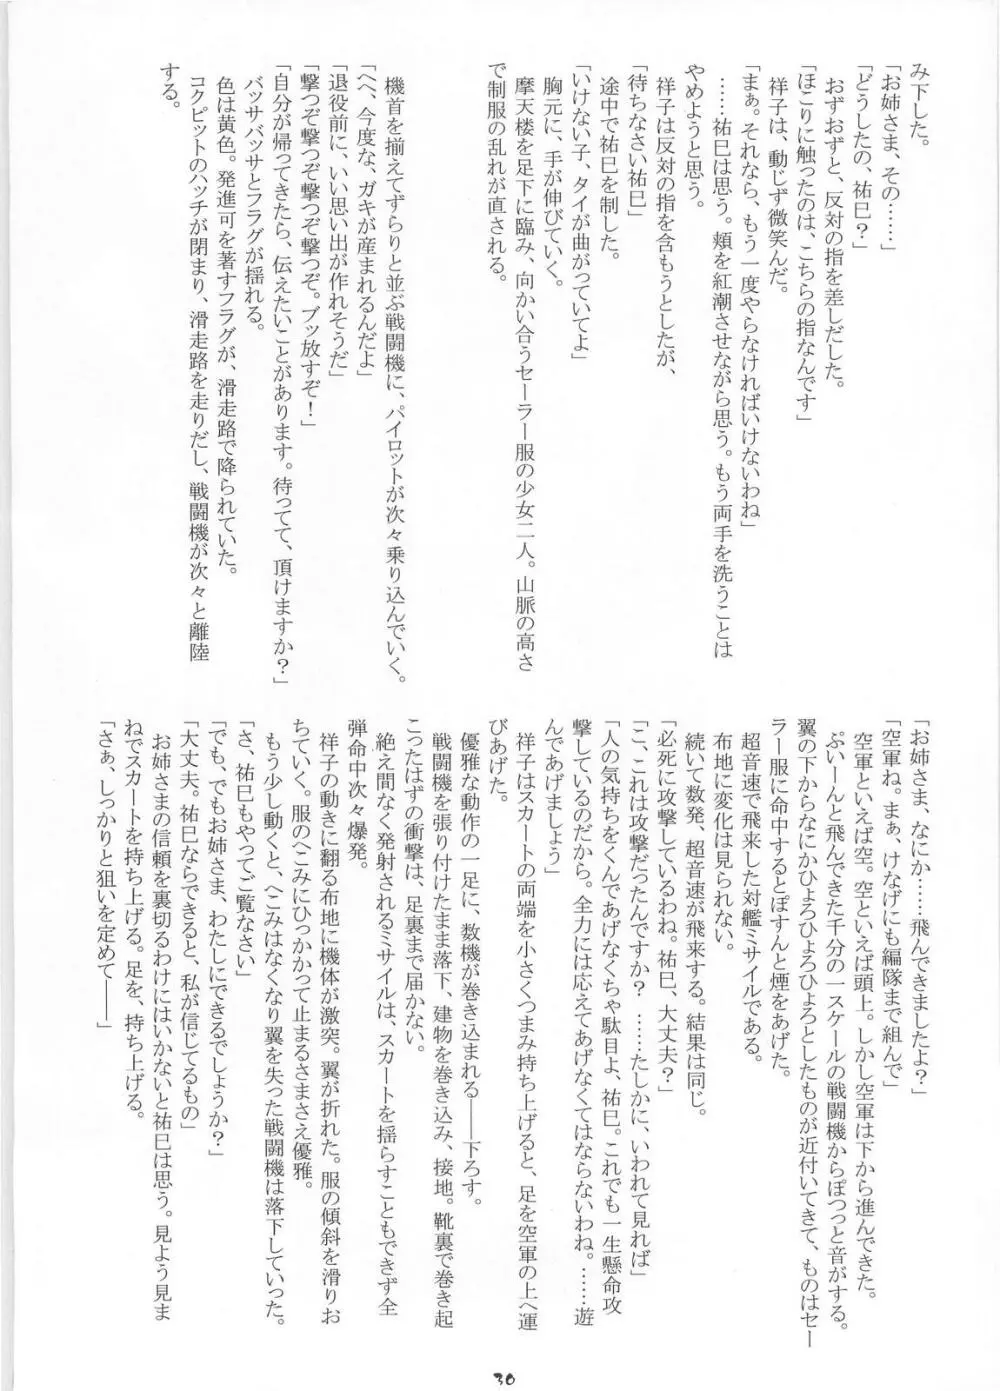 み下した。
「お姉さま、その……」
「どうしたの、祐巳？」
　おずおずと、反対の指を差しだした。
「ほこりに触ったのは、こちらの指なんです」
　祥子は、動じず微笑んだ。
「まぁ。それなら、もう一度やらなければいけないわね」
　……祐巳は思う。頬を紅潮させながら思う。もう両手を洗うことは
やめようと思う。
　祥子は反対の指を含もうとしたが、
「待ちなさい祐巳」
　途中で祐巳を制した。
「いけない子、タイが曲がっていてよ」
　胸元に、手が伸びていく。
　摩天楼を足下に臨み、向かい合うセーラー服の少女二人。山脈の高さ
で制服の乱れが直される。
　機首を揃えてずらりと並ぶ戦闘機に、パイロットが次々乗り込んでいく。
「へへ、今度な、ガキが産まれるんだよ」
「退役前に、いい思い出が作れそうだ」
「撃つぞ撃つぞ撃つぞ撃つぞ。ブッ放すぞ！」
「自分が帰ってきたら、伝えたいことがあります。待ってて、頂けますか？」
　バッサバッサとフラグが揺れる。
　色は黄色。発進可を著すフラグが、滑走路で降られていた。
　コクピットのハッチが閉まり、滑走路を走りだし、戦闘機が次々と離陸
する。
「お姉さま、なにか……飛んできましたよ？」
「空軍ね。まぁ、けなげにも編隊まで組んで」
　空軍といえば空。空といえば頭上。しかし空軍は下から進んできた。
　ぷいーんと飛んできた千分の一スケールの戦闘機からぽつっと音がする。
翼の下からなにかひょろひょろひょろとしたものが近付いてきて、ものはセー
ラー服に命中するとぽすんと煙をあげた。
　超音速で飛来した対艦ミサイルである。
　布地に変化は見られない。
　続いて数発、超音速が飛来する。結果は同じ。
「必死に攻撃しているわね。祐巳、大丈夫？」
「こ、これは攻撃だったんですか？　……たしかに、いわれて見れば」
「人の気持ちをくんであげなくちゃ駄目よ、祐巳。これでも一生懸命攻
撃しているのだから。全力には応えてあげなくてはならないわね。……遊
んであげましょう」
　祥子はスカートの両端を小さくつまみ持ち上げると、足を空軍の上へ運
びあげた。
　優雅な動作の一足に、数機が巻き込まれる――下ろす。
　戦闘機を張り付けたまま落下、建物を巻き込み、接地。靴裏で巻き起
こったはずの衝撃は、足裏まで届かない。
　絶え間なく発射されるミサイルは、スカートを揺らすこともできず全
弾命中次々爆発。
　祥子の動きに翻る布地に機体が激突。翼が折れた。服の傾斜を滑りお
ちていく。服のへこみにひっかかって止まるさまさえ優雅。
　もう少し動くと、へこみはなくなり翼を失った戦闘機は落下していった。
「さ、祐巳もやってご覧なさい」
「でも、でもお姉さま、わたしにできるでしょうか？」
「大丈夫。祐巳ならできると、私が信じてるもの」
　お姉さまの信頼を裏切るわけにはいかないと祐巳は思う。見よう見ま
ねでスカートを持ち上げる。足を、持ち上げる。
「さぁ、しっかりと狙いを定めて――」
30